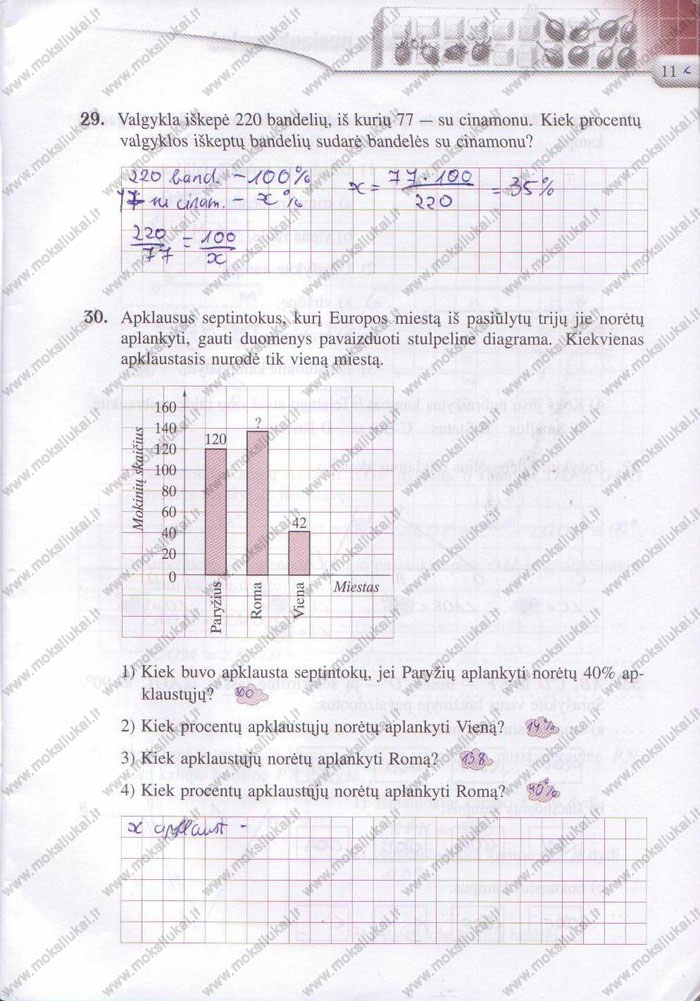 11
29. Valgykla iškepė 220 bandelių, iš kurių 77 — su cinamonu. Kiek procentų
valgyklos iškeptų bandelių sudarė bandelės su cinamonu?
220 band. – 100%
77 su cinam. – x %
220/77 = 100/x
x = 77 · 100/220 = 35%
30. Apklausus septintokus, kurį Europos miestą iš pasiūlytų trijų jie norėtų
aplankyti, gauti duomenys pavaizduoti stulpeline diagrama. Kiekvienas
apklaustasis nurodė tik vieną miestą.
Mokinių skaičius
160
140
120
100
80
60
40
20
0
120
?
42
Paryžius
Roma
Viena
Miestas
1) Kiek buvo apklausta septintokų, jei Paryžių aplankyti norėtų 40% ap-
klaustųjų? 300
2) Kiek procentų apklaustųjų norėtų aplankyti Vieną? 14%
3) Kiek apklaustųjų norėtų aplankyti Romą? 138
4) Kiek procentų apklaustųjų norėtų aplankyti Romą?
x apklaust –
www.moksliukai.lt